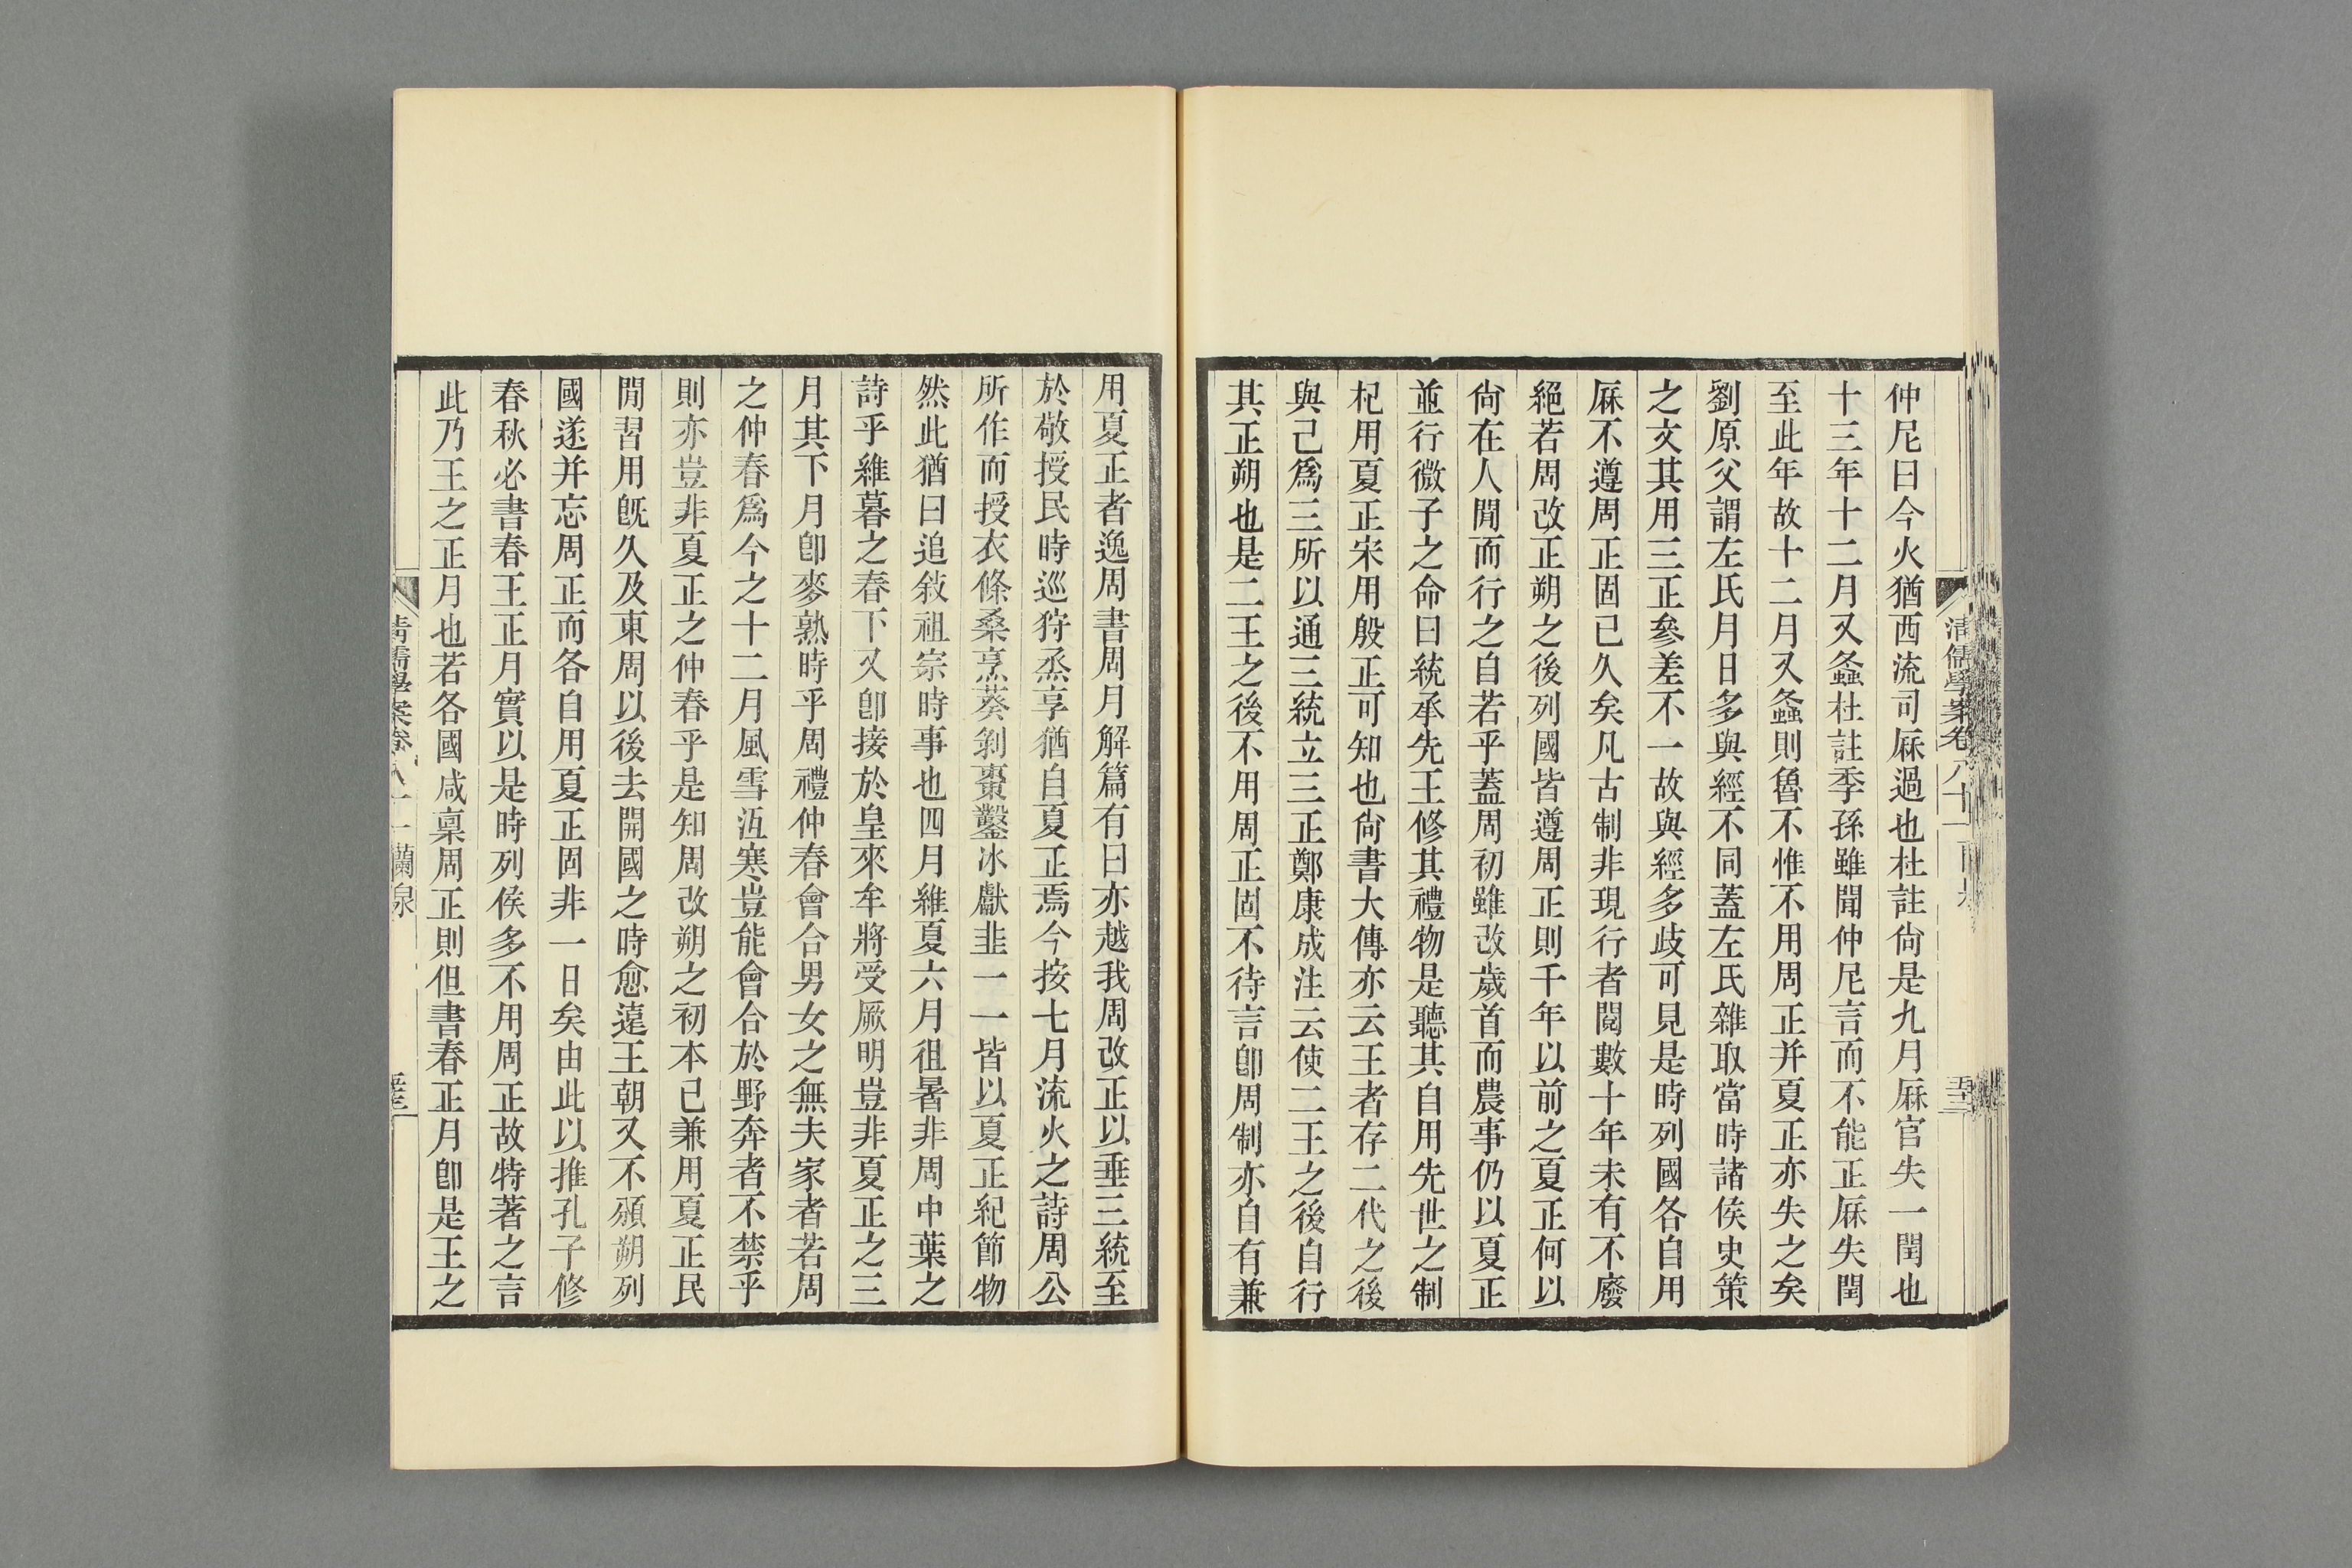 仲尼曰今火猶西流司厤過也杜註尙是九月厤官失一閏也
十三年十二月又螽杜註季孫雖聞仲尼言而不能正厤失閏
至此年故十二月又螽則魯不惟不用周正并夏正亦失之矣
劉原父謂左氏月日多與經不同蓋左氏雜取當時諸侯史策
之文其用三正參差不一故與經多歧可見是時列國各自用
厤不遵周正固已久矣凡古制非現行者閱數十年未有不廢
絕若周改正朔之後列國皆遵周正則千年以前之夏正何以
尙在人閒而行之自若乎蓋周初雖改歲首而農事仍以夏正
並行微子之命曰統承先王修其禮物是聽其自用先世之制
杞用夏正宋用殷正可知也尙書大傳亦云王者存二代之後
與己爲三所以通三統立三正鄭康成注云使二王之後自行
其正朔也是二王之後不用周正固不待言卽周制亦自有兼
用夏正者逸周書周月解篇有曰亦越我周改正以垂三統至
於敬授民時巡狩烝享猶自夏正焉今按七月流火之詩周公
所作而授衣條桑烹葵剝棗鑿冰獻韭一一皆以夏正紀節物
然此猶曰追敘祖宗時事也四月維夏六月徂暑非周中葉之
詩乎維暮之春下又卽接於皇來牟將受厥明豈非夏正之三
月其下月卽麥熟時乎周禮仲春會合男女之無夫家者若周
之仲春爲今之十二月風雪沍寒豈能會合於野奔者不禁乎
則亦豈非夏正之仲春乎是知周改朔之初本已兼用夏正民
閒習用旣久及東周以後去開國之時愈遠王朝又不頒朔列
國遂并忘周正而各自用夏正固非一日矣由此以推孔子修
春秋必書春王正月實以是時列侯多不用周正故特著之言
此乃王之正月也若各國咸稟周正則但書春正月卽是王之
清儒學案卷八十一
蘭泉